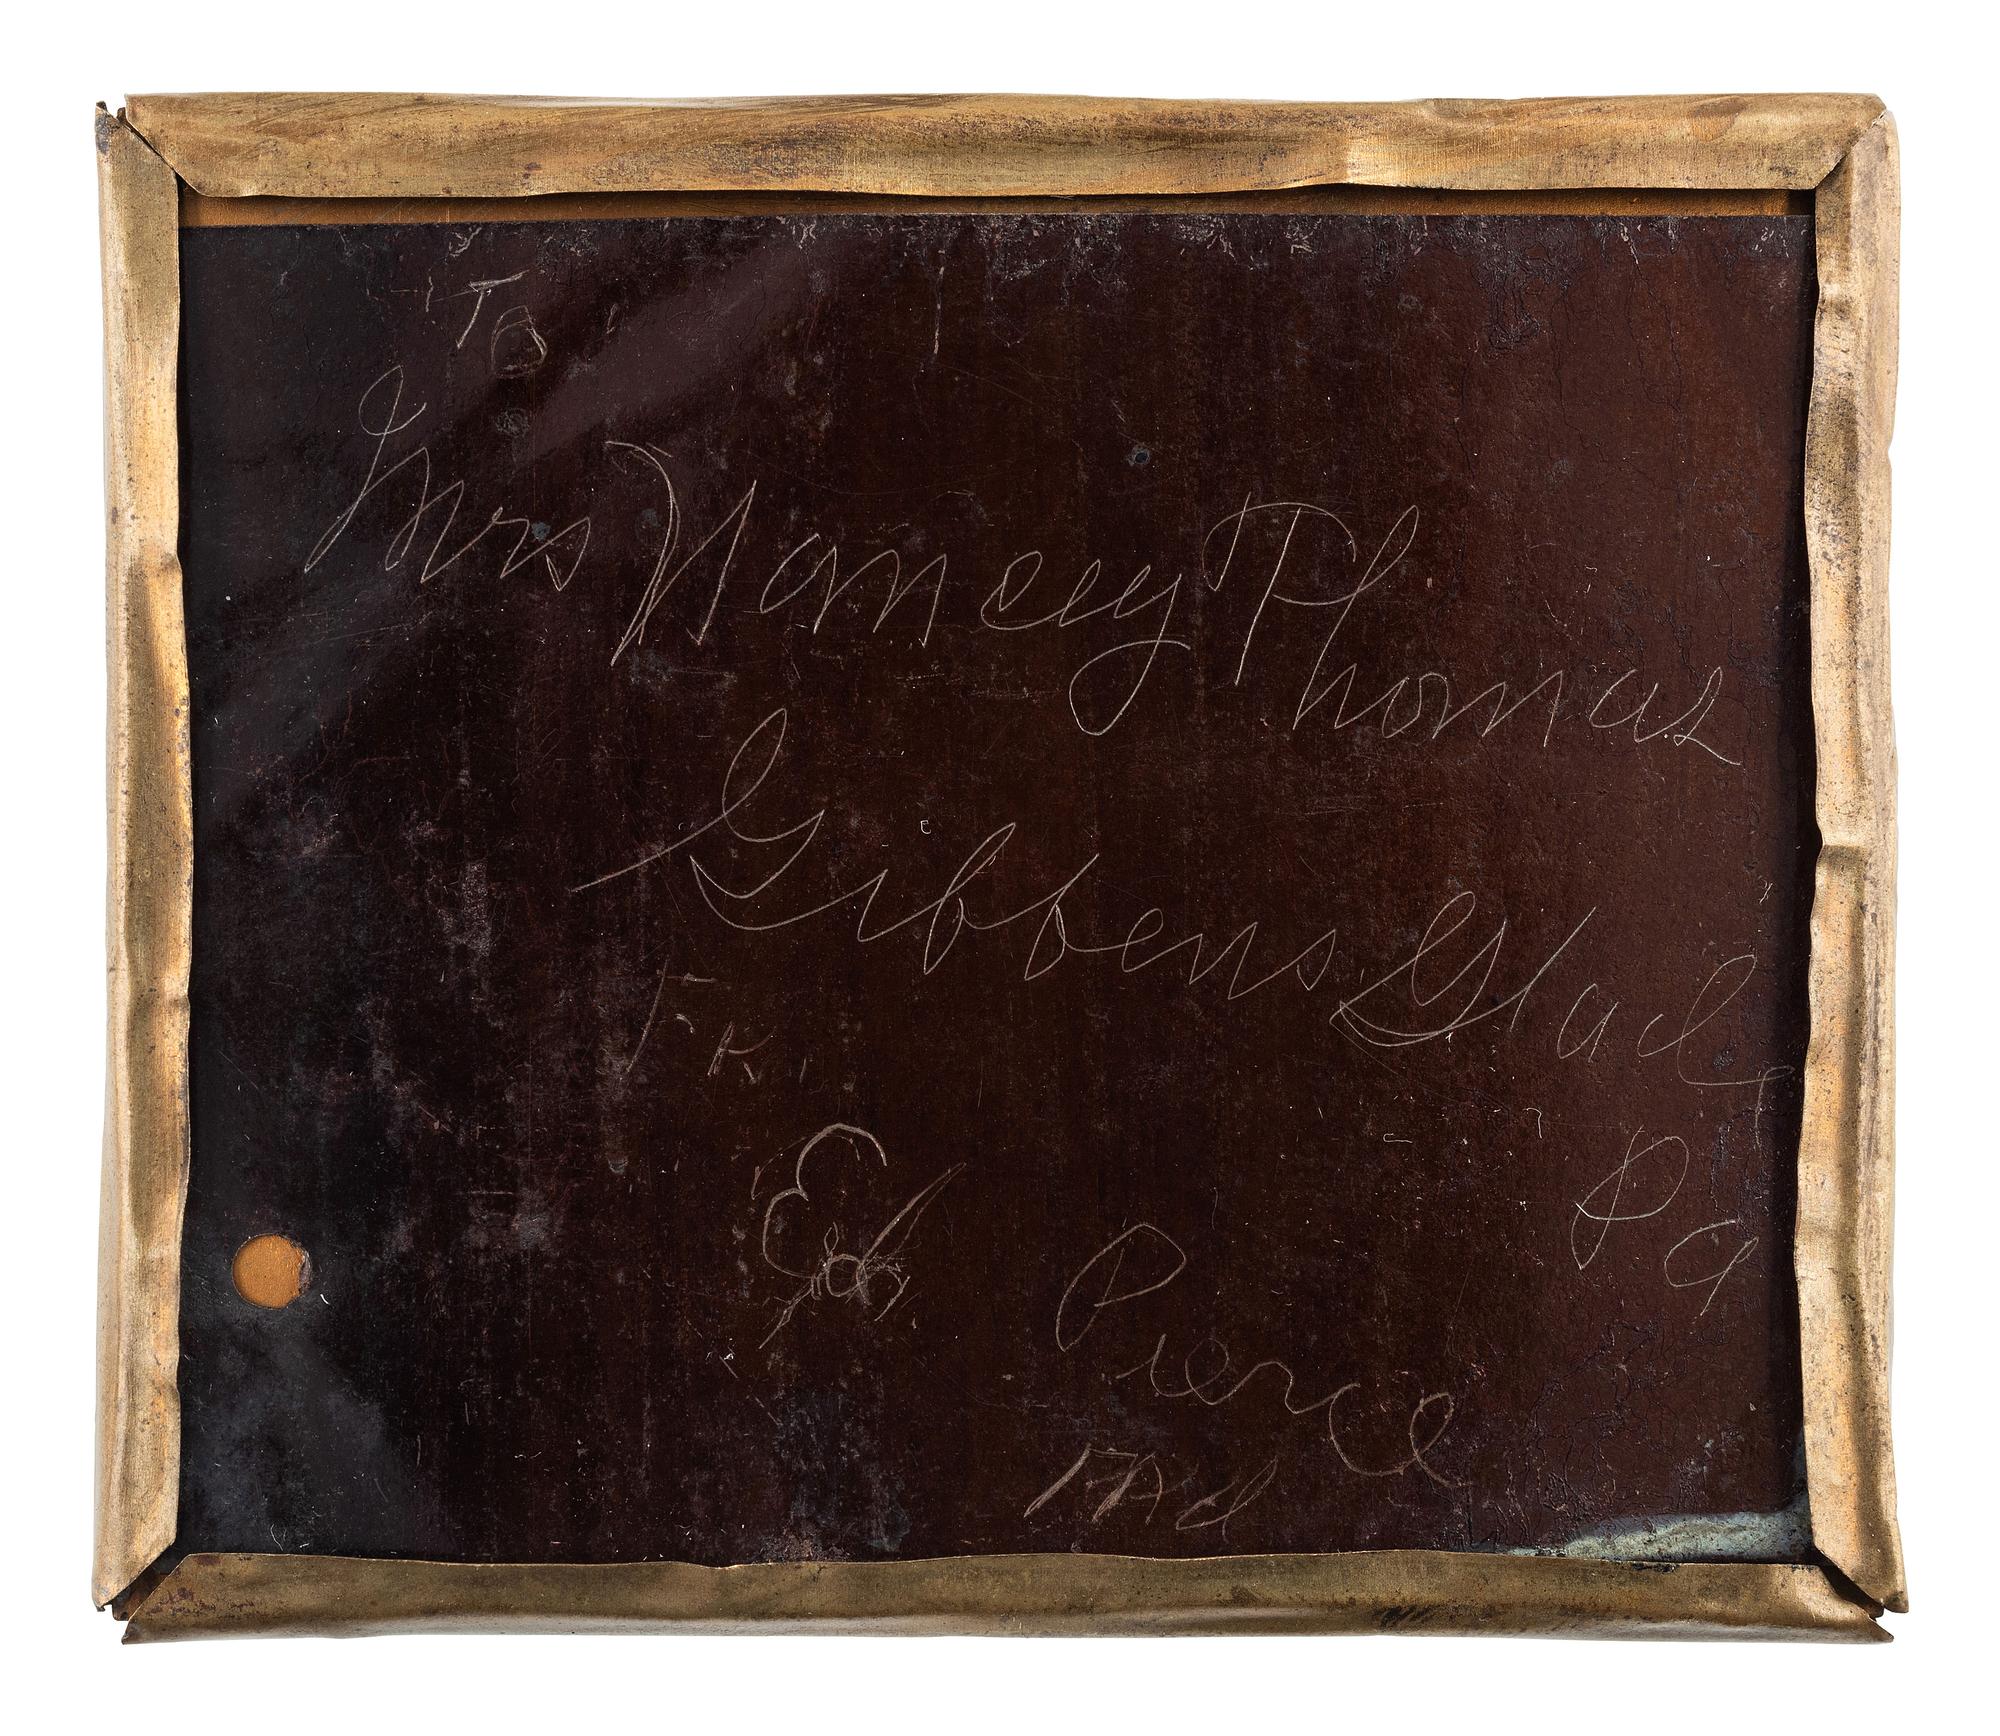 To
Mrs Nancy Thomas
Gibbens Glad
Pa
Fr
Ed Pierce
Md